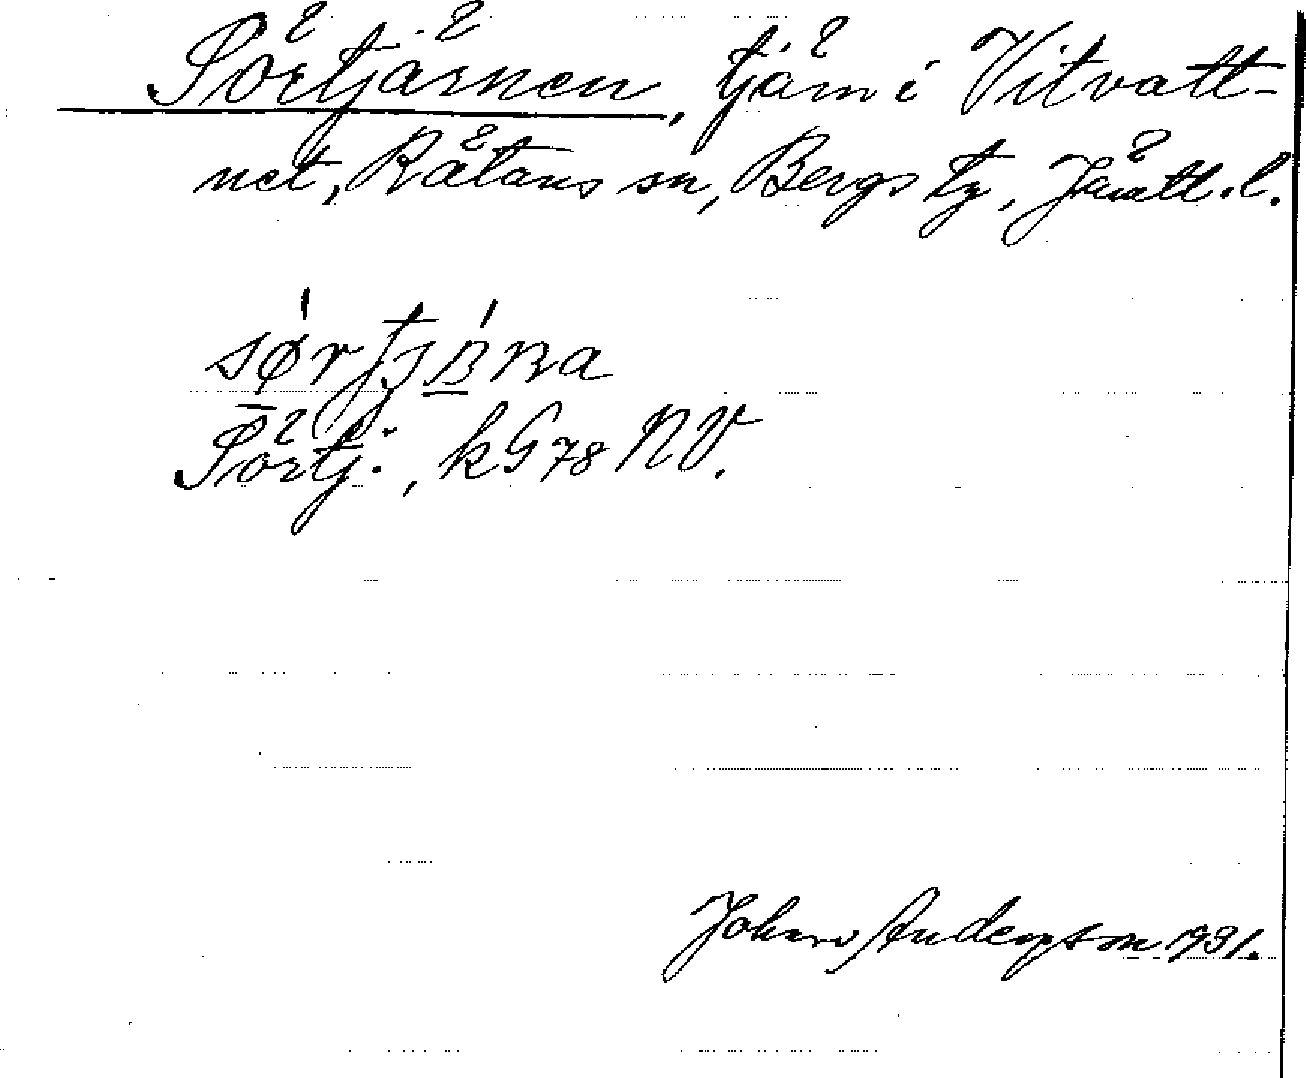 Sörtjärnen, tjärn i Vitvatt-
net, Rätans sn, Bergs tg, Jämtl. l.
Sörtj:, kG 78 NV.
Johan Anderzson 1931.